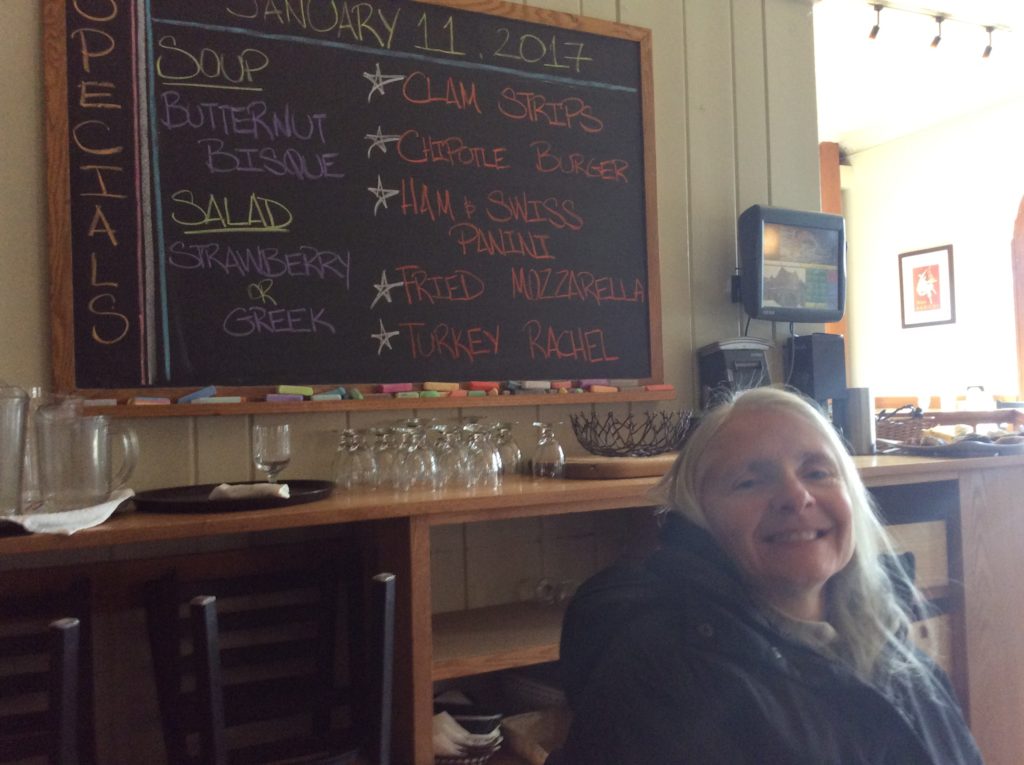 SPECIALS
JANUARY 11, 2017
SOUP
BUTTERNUT
BISQUE
SALAD
STRAWBERRY
OR
GREEK
CLAM STRIPS
CHIPOTLE BURGER
HAM & SWISS
PANINI
FRIED MOZZARELLA
TURKEY RACHEL